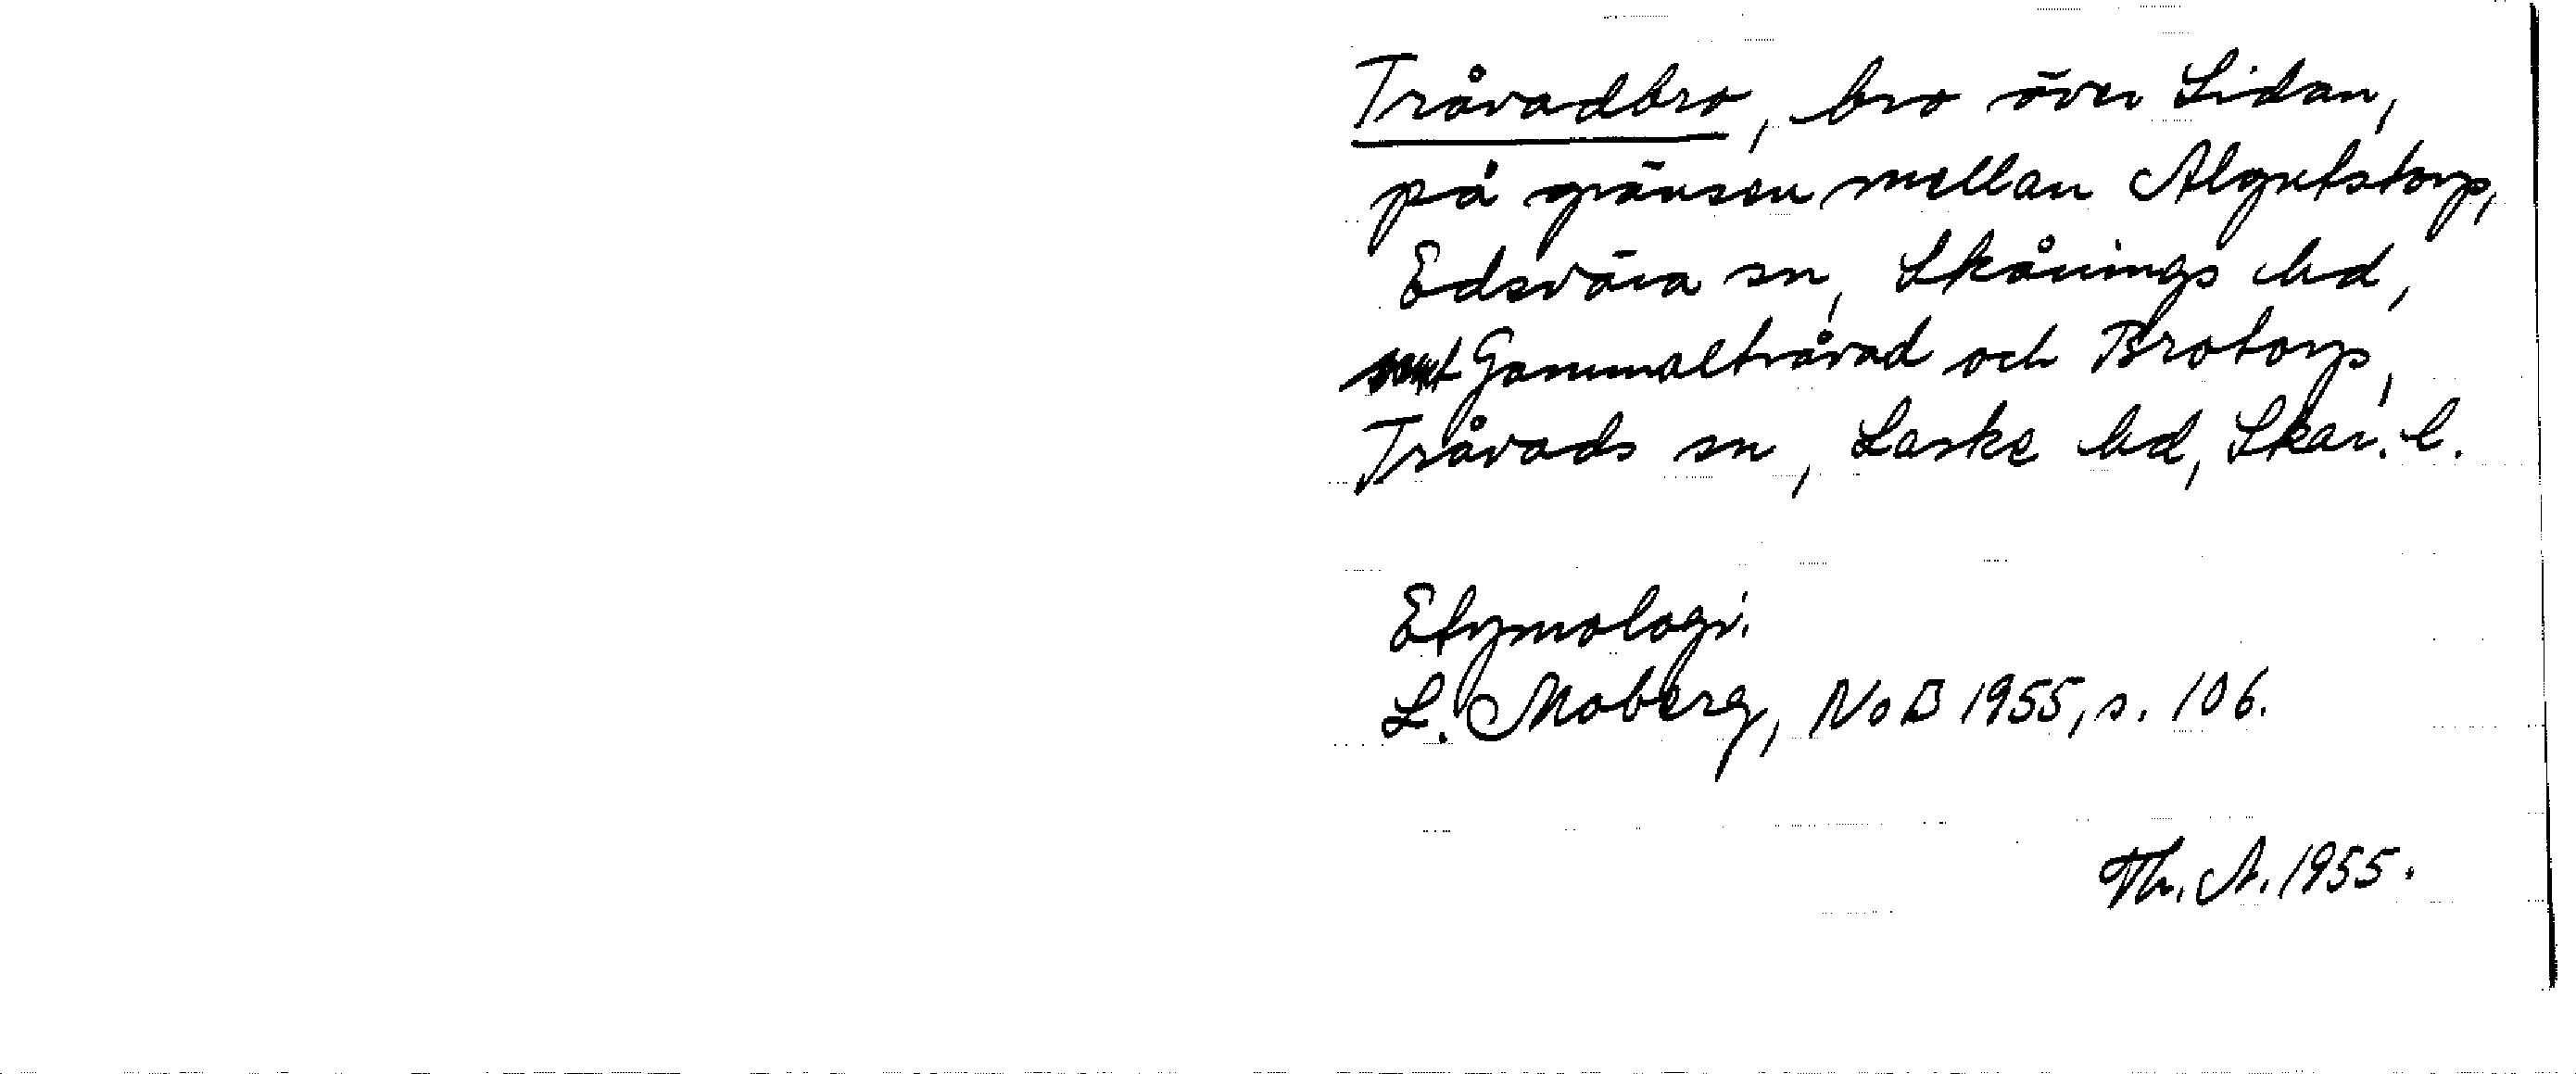 Tråvadbro, bro över Lidan,
på gränsen mellan Algutstorp,
Edsvära sn, Skånings hd,
samt Gammaltråvad och Brotorp,
Tråvads sn, Laske hd, Skar. l.
Etymologi.
L. Moberg, NoB 1955, s. 106.
Th. A. 1955.